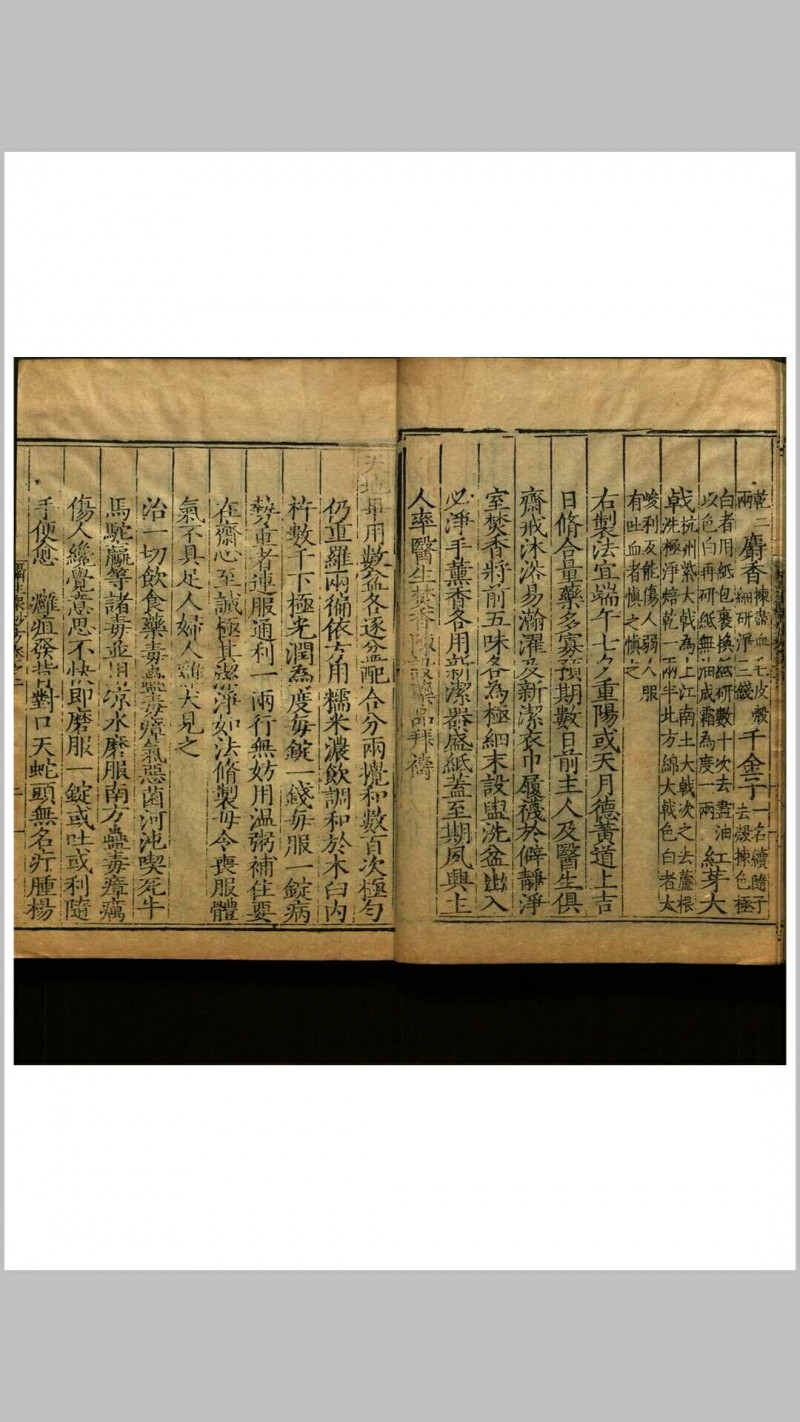 乾二兩 麝香 揀盡血毛皮殼細研淨三錢 千金子 一名續隨子去殼揀色極
白者用紙包裹換紙研數十次去盡油以色白再研紙無油成霜為度一兩 紅芽大
戟 杭州紫大戟為上江南土大戟次之去蘆根洗極淨焙乾一兩半此方綿大戟色白者太
峻利反能傷人弱人服有吐血者慎之慎之
右製法宜端午七夕重陽或天月德黃道上吉
日脩合量藥多寡預期數日前主人及醫生俱
齋戒沐浴易澣濯及新潔衣巾履襪於僻靜淨
室焚香將前五味各為極細末設盥洗盆出入
必淨手薰香各用新潔器盛紙蓋至期夙興主
人率醫生焚香陳設藥品拜禱
天地畢用數盆各逐盆配合分兩攪和數百次極勻
仍重羅兩徧依方用糯米濃飲調和於木臼內
杵數千下極光潤為度每錠一錢每服一錠病
勢重者連服通利一兩行無妨用溫粥補住要
在齋心至誠極其潔淨如法脩製毋令喪服體
氣不具足人婦人雞犬見之
治一切飲食藥毒蠱毒瘴氣惡菌河㹠喫死牛
馬駝騾等諸毒並用凉水磨服南方蠱毒瘴癘
傷人纔覺意思不快即磨服一錠或吐或利隨
手便愈 癰疽發背對口天蛇頭無名疔腫楊